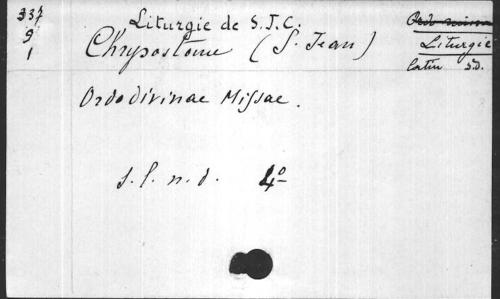 337
9
1
Liturgie de S.J.C.
Chrysostome (S. Jean)
Liturgie
latin s.d.
Ordo divinae Missae.
s.l.n.d. 4º